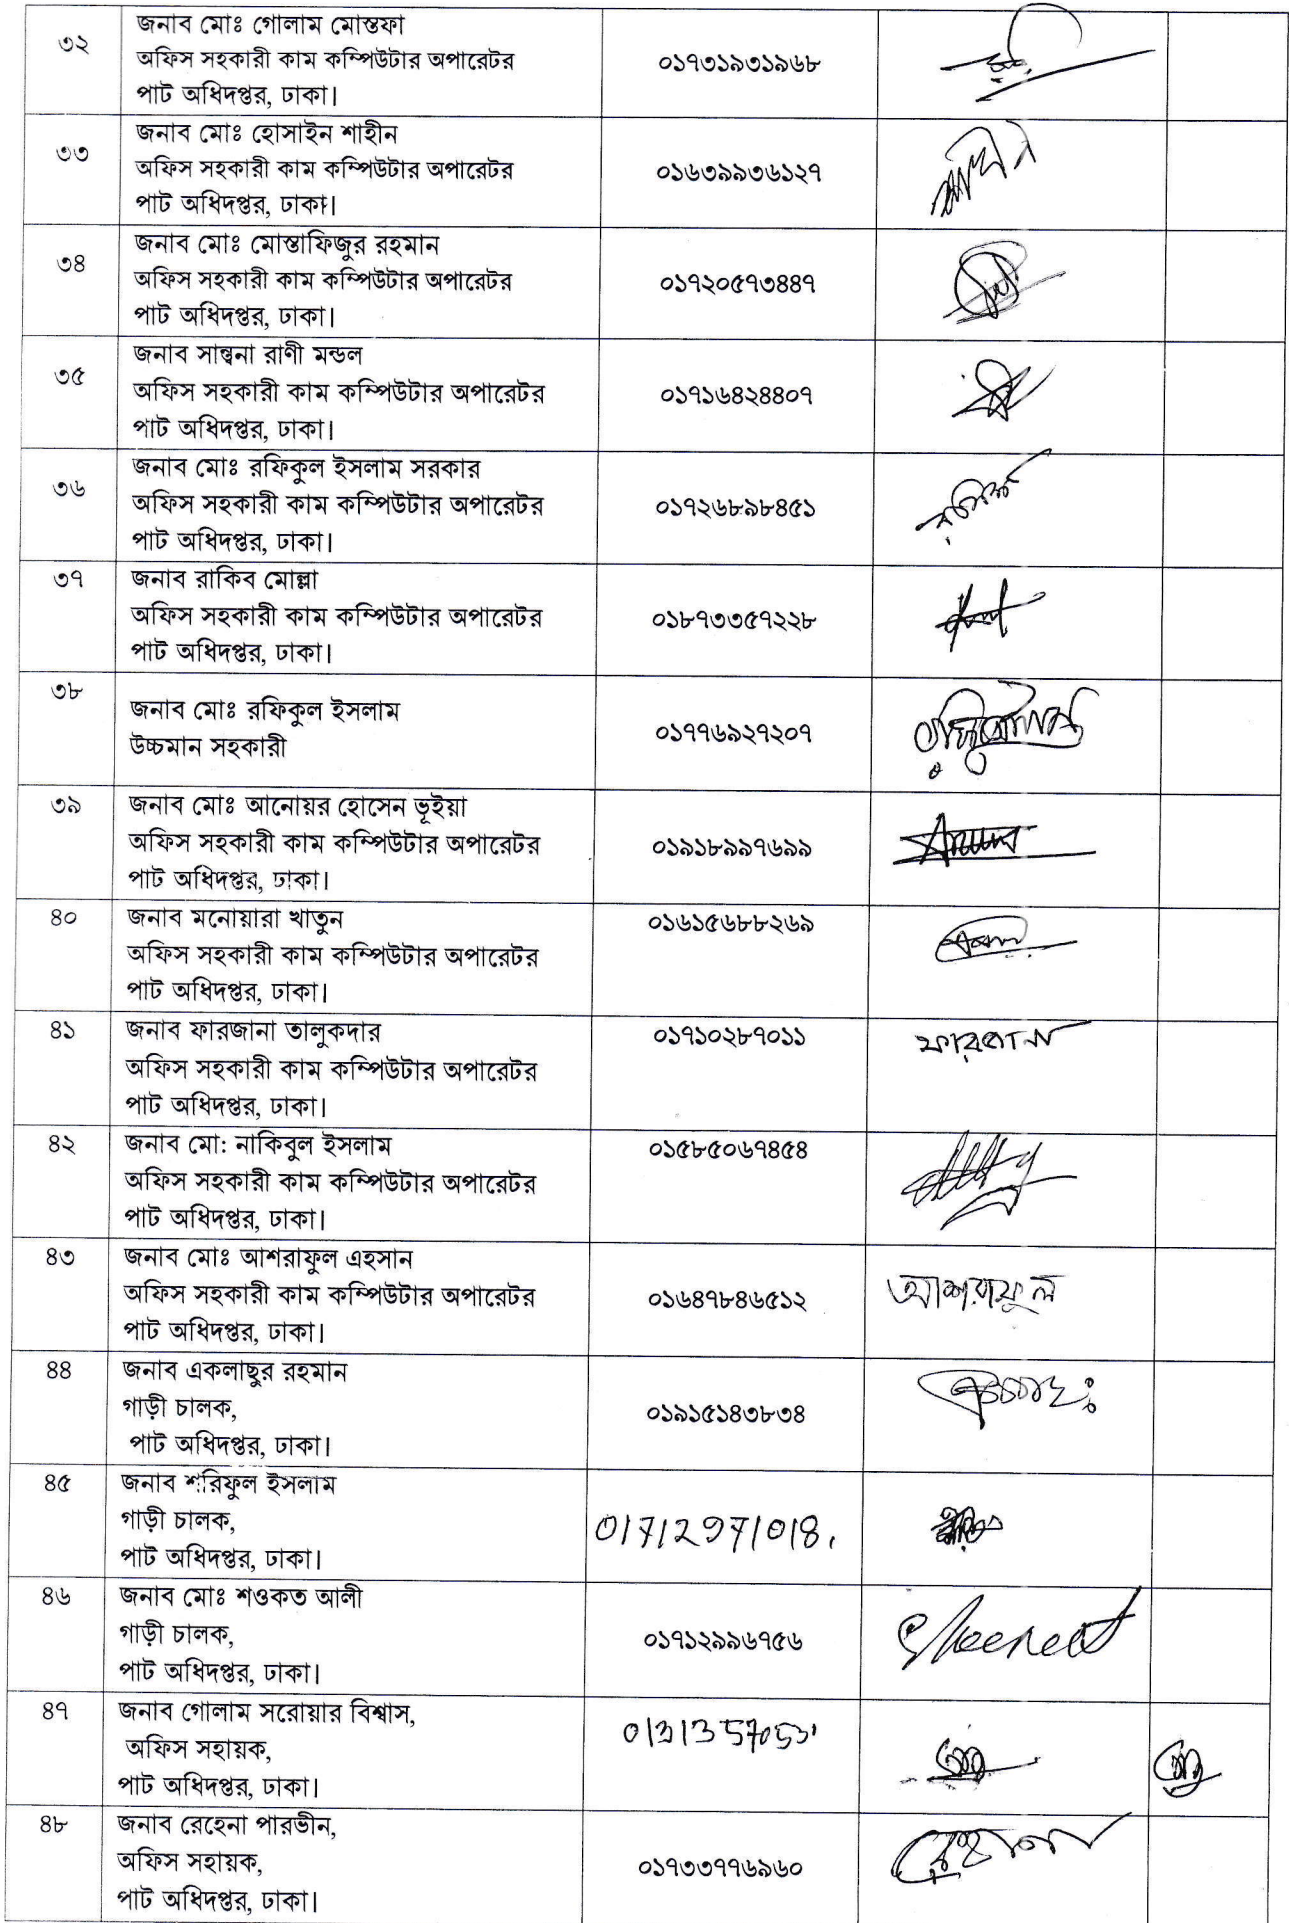 ৩২
জনাব মোঃ গোলাম মোস্তফা
অফিস সহকারী কাম কম্পিউটার অপারেটর
পাট অধিদপ্তর, ঢাকা।
০১৭৩১৯৩১৯৬৮
৩৩
জনাব মোঃ হোসাইন শাহীন
অফিস সহকারী কাম কম্পিউটার অপারেটর
পাট অধিদপ্তর, ঢাকা।
০১৬৩৯৯৩৬১২৭
৩৪
জনাব মোঃ মোস্তাফিজুর রহমান
অফিস সহকারী কাম কম্পিউটার অপারেটর
পাট অধিদপ্তর, ঢাকা।
০১৭২০৫৭৩৪৪৭
৩৫
জনাব সান্ত্বনা রাণী মন্ডল
অফিস সহকারী কাম কম্পিউটার অপারেটর
পাট অধিদপ্তর, ঢাকা।
০১৭১৬৪২৪৪০৭
৩৬
জনাব মোঃ রফিকুল ইসলাম সরকার
অফিস সহকারী কাম কম্পিউটার অপারেটর
পাট অধিদপ্তর, ঢাকা।
০১৭২৬৮৯৮৪৫১
৩৭
জনাব রাকিব মোল্লা
অফিস সহকারী কাম কম্পিউটার অপারেটর
পাট অধিদপ্তর, ঢাকা।
০১৮৭৩৩৫৭২২৮
৩৮
জনাব মোঃ রফিকুল ইসলাম
উচ্চমান সহকারী
০১৭৭৬৯২৭২০৭
৩৯
জনাব মোঃ আনোয়র হোসেন ভূইয়া
অফিস সহকারী কাম কম্পিউটার অপারেটর
পাট অধিদপ্তর, ঢাকা।
০১৯১৮৯৯৭৬৯৯
৪০
জনাব মনোয়ারা খাতুন
অফিস সহকারী কাম কম্পিউটার অপারেটর
পাট অধিদপ্তর, ঢাকা।
০১৬১৫৬৮৮২৬৯
৪১
জনাব ফারজানা তালুকদার
অফিস সহকারী কাম কম্পিউটার অপারেটর
পাট অধিদপ্তর, ঢাকা।
০১৭১০২৮৭০১১
ফারজানা
৪২
জনাব মো: নাকিবুল ইসলাম
অফিস সহকারী কাম কম্পিউটার অপারেটর
পাট অধিদপ্তর, ঢাকা।
০১৫৮৫০৬৭৪৫৪
৪৩
জনাব মোঃ আশরাফুল এহসান
অফিস সহকারী কাম কম্পিউটার অপারেটর
পাট অধিদপ্তর, ঢাকা।
০১৬৪৭৮৪৬৫১২
আশরাফুল
৪৪
জনাব একলাছুর রহমান
গাড়ী চালক,
পাট অধিদপ্তর, ঢাকা।
০১৯১৫১৪৩৮৩৪
৪৫
জনাব শরিফুল ইসলাম
গাড়ী চালক,
পাট অধিদপ্তর, ঢাকা।
01712971018.
৪৬
জনাব মোঃ শওকত আলী
গাড়ী চালক,
পাট অধিদপ্তর, ঢাকা।
০১৭১২৯৯৬৭৫৬
৪৭
জনাব গোলাম সরোয়ার বিশ্বাস,
অফিস সহায়ক,
পাট অধিদপ্তর, ঢাকা।
৪৮
জনাব রেহেনা পারভীন,
অফিস সহায়ক,
পাট অধিদপ্তর, ঢাকা।
০১৭৩৩৭৭৬৯৬০